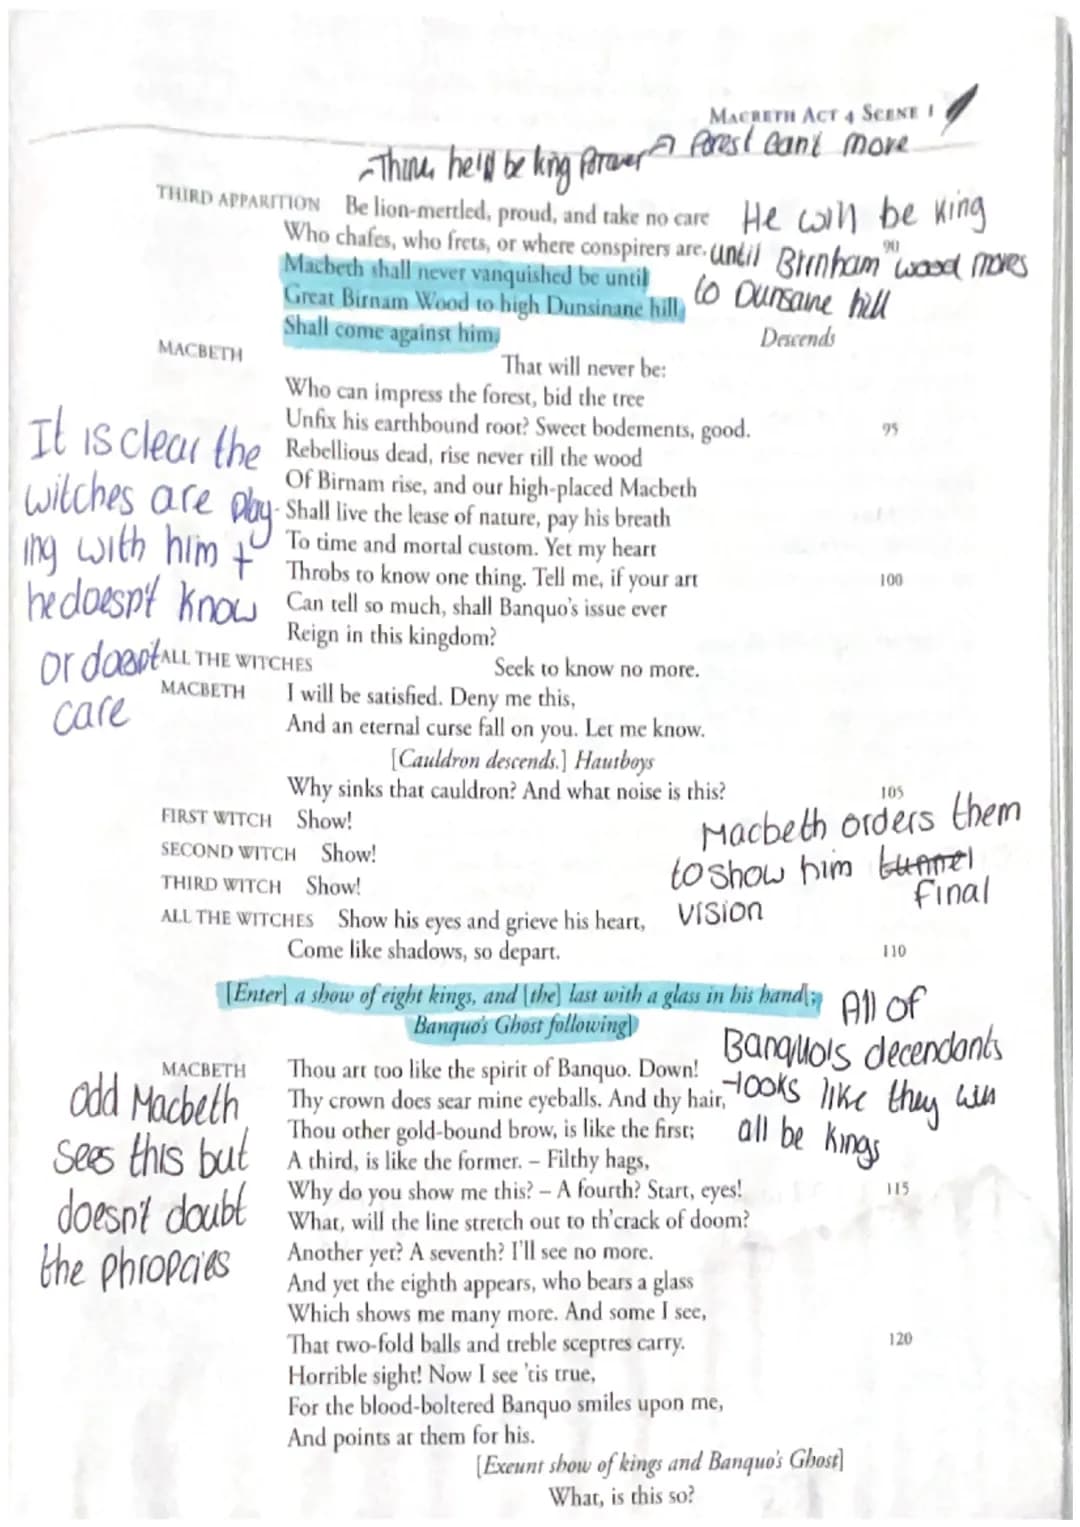 MACBETH ACT 4 SCENE 1
he'll be king forever → forest can't move
THIRD APPARITION Be lion-mettled, proud, and take no care
He will be king
Who chafes, who frets, or where conspirers are. 90
until Birnham wood moves
Macbeth shall never vanquished be until
Great Birnam Wood to high Dunsinane hill
to Dunsane hill
Shall come against him. Descends
MACBETH That will never be:
Who can impress the forest, bid the tree
Unfix his earthbound root? Sweet bodements, good. 95
Rebellious dead, rise never till the wood
Of Birnam rise, and our high-placed Macbeth
Shall live the lease of nature, pay his breath
To time and mortal custom. Yet my heart
Throbs to know one thing. Tell me, if your art 100
Can tell so much, shall Banquo's issue ever
Reign in this kingdom?
It is clear the
witches are play-
ing with him +
he doesn't know
or doesn't
care
ALL THE WITCHES Seek to know no more.
MACBETH I will be satisfied. Deny me this,
And an eternal curse fall on you. Let me know.
[Cauldron descends.] Hautboys
Why sinks that cauldron? And what noise is this? 105
FIRST WITCH Show!
SECOND WITCH Show!
THIRD WITCH Show!
Macbeth orders them
to show him
final
vision
ALL THE WITCHES Show his eyes and grieve his heart,
Come like shadows, so depart. 110
[Enter] a show of eight kings, and [the] last with a glass in his hand[;
Banquo's Ghost following]
All of
Banquo's decendants
-looks like they will
all be kings
MACBETH Thou art too like the spirit of Banquo. Down!
Thy crown does sear mine eyeballs. And thy hair,
Thou other gold-bound brow, is like the first;
A third, is like the former. – Filthy hags,
Why do you show me this? – A fourth? Start, eyes! 115
What, will the line stretch out to th'crack of doom?
Another yet? A seventh? I'll see no more.
And yet the eighth appears, who bears a glass
Which shows me many more. And some I see,
That two-fold balls and treble sceptres carry. 120
Horrible sight! Now I see 'tis true,
For the blood-boltered Banquo smiles upon me,
And points at them for his.
odd Macbeth
sees this but
doesn't doubt
the phropcies
[Exeunt show of kings and Banquo's Ghost]
What, is this so?